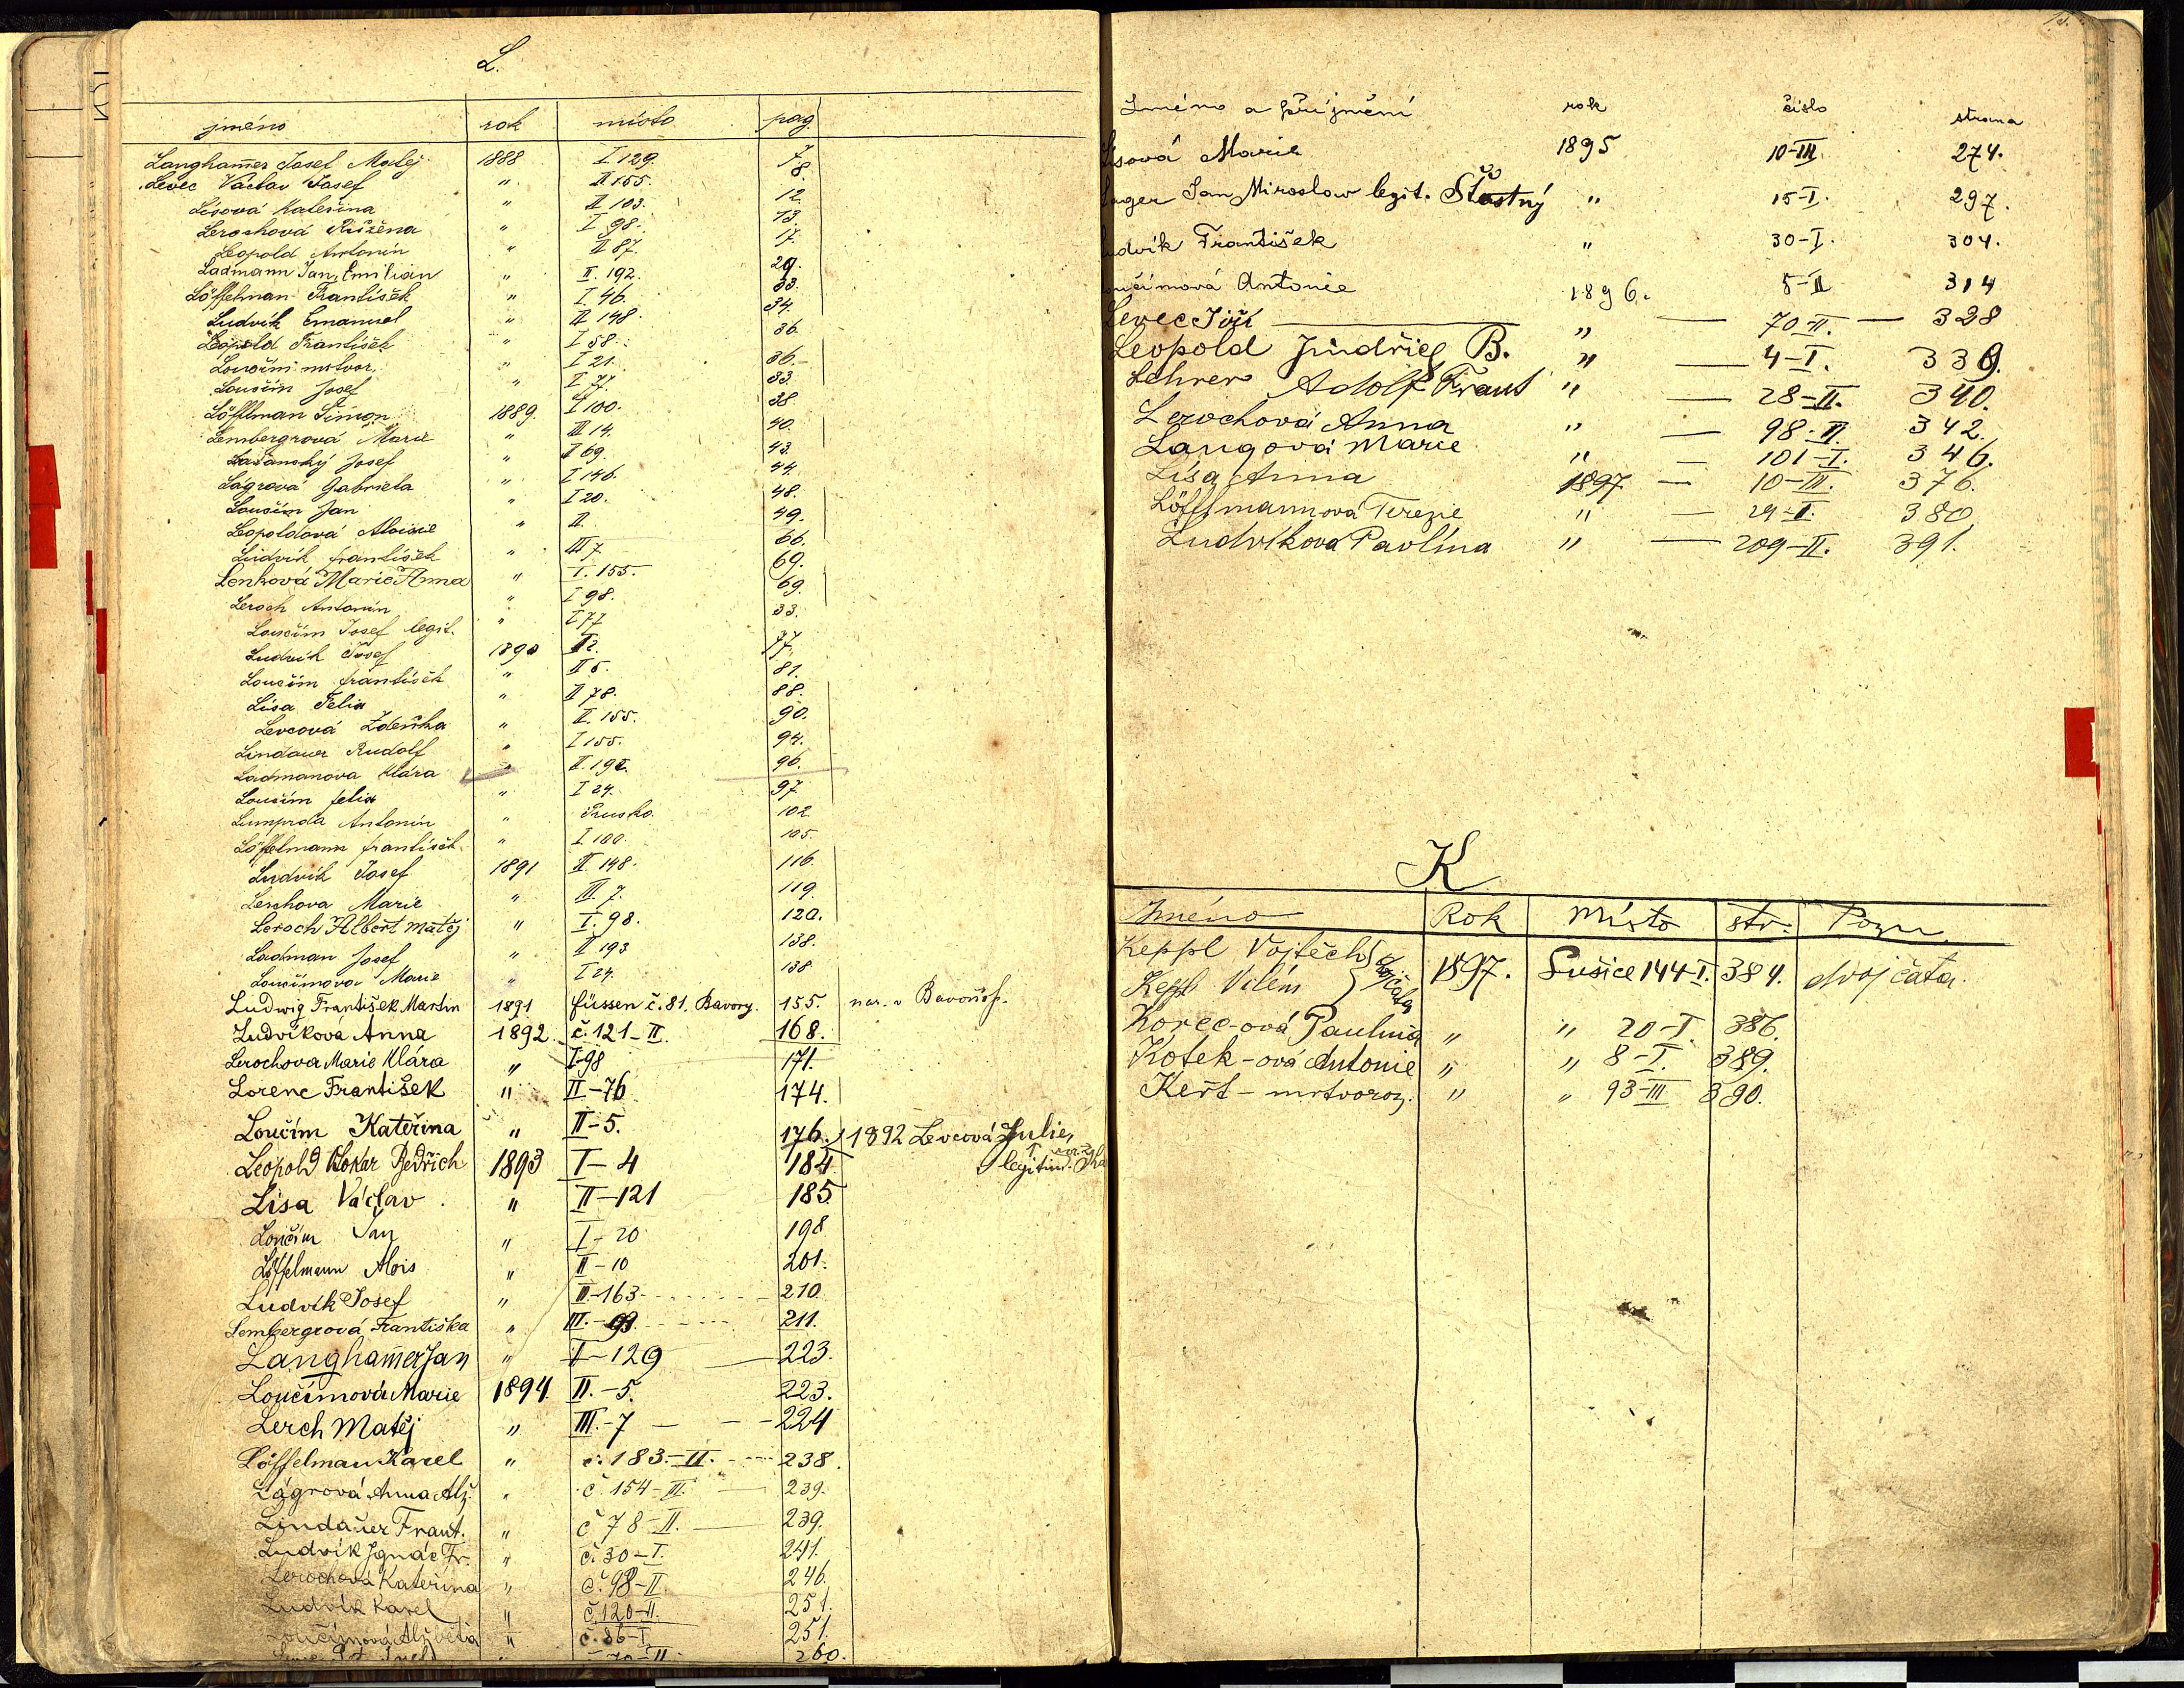 L.
jméno rok místo pag.
Langhamer Josef Matěj 1888 I 129. 7.
Levec Václav Josef " II 155. 8.
Lísová Kateřina " II 103. 12.
Lerochová Růžena " I 98. 13
Leopold Antonín " II 87. 17.
Ladmann Jan Emilian " II. 192. 29.
Löffelman František " I. 46. 33.
Ludvík Emanuel " II 148. 34.
Leopold František " I 58. 36.
Loučim mrtvor. " I 21. 36.
Loučím Josef " I 77. 33.
Löfflman Šimon 1889. I 100. 38
Lembergrová Marie " III 14. 40.
Lažanský Josef " I 69. 43.
Lágrová Gabriela " I 146. 44.
Loučím Jan " I 20. 48.
Leopoldová Aloisie " II. 49.
Ludvík František " III 7. 66.
Lenková Marie Anna " I. 155. 69.
Leroch Antonín " I 98. 69.
Loučím Josef legit. " I 77 33.
Ludvík Josef 1890 II 2. 77.
Loučím František " II 5. 81.
Lísa Felix " II 78. 88.
Levcová Zdeňka " II. 155. 90.
Lindauer Rudolf " I 155. 94.
Ladmanova Klára " II. 192. 96.
Loučím Felix " I 24. 97
Antonín " Prusko. 102
Löffelmann František " I 100. 105.
Ludvík Josef 1891 II 148. 116.
Lerchova Marie " III. 7. 119.
Leroch Albert Matěj " I. 98. 120.
Ladman Josef " II 193 138.
Loučimova Marie " I 24. 138
Ludwig František Martin 1891 Füssen č. 81. Bavory. 155. nar. v
Ludvíková Anna 1892. č. 121-II. 168.
Lerochova Marie Klára " I-98 171.
Lorenc František " II-76 174.
Loučím Kateřina " II-5. 176. 1892 Levcová Julie,
legitim.
Leopold Otokar Bedřich 1893 I-4 184
Lísa Václav " II-121 185.
Loučim Jan " I-20 198
Löffelmann Alois " II-10 201.
Ludvík Josef " II-163 210.
Lembergrová Františka " III.-93. 211.
Langhamer Jan " I-129 223.
Loučimová Marie 1894. II.-5. 223.
Lerch Matěj " III.-7 224
Löffelman Karel " č. 183.-II. 238.
Lágrová Anna Alž. " č. 154-II. 239.
Lindauer Frant. " č 78-II. 239.
Ludvík Ignác Fr. " č. 30-I. 241.
Lerochová Kateřina " č. 98-II. 246.
Ludvík Karel " č. 120-II. 251.
Loučimová Alžběta " č. 86-I. 251.
260.
Jméno a příjmění rok číslo strana
Lísová Marie 1895 10-III. 274.
Jan Miroslav legit. Šťastný " 15-I. 297.
Ludvík František " 30-I. 304.
Loučímová Antonie 1896. 5-II 314
Levec Jiří " 70-II. 328
Leopold Jindřich B. " 4-I. 339.
Lehrer Adolf Frant " 28-II. 340.
Lerochová Anna " 98-II. 342.
Langová Marie " 101-I. 346.
Lísa Anna 1897 10-III. 376.
Löfflmannová Terezie " 29-I. 380
Ludvíkova Pavlína " 209-II. 391.
K
Jméno Rok Místo str. Pozn.
Keppl Vojtěch dvojčata 1897. Sušice 144-I. 384. dvojčata.
Keppl Vilém
Korec-ová Paulina " " 20-I. 386.
Kotek-ová Antonie " " 8-I. 389.
Keřt-mrtvoroz. " " 93-III 390.